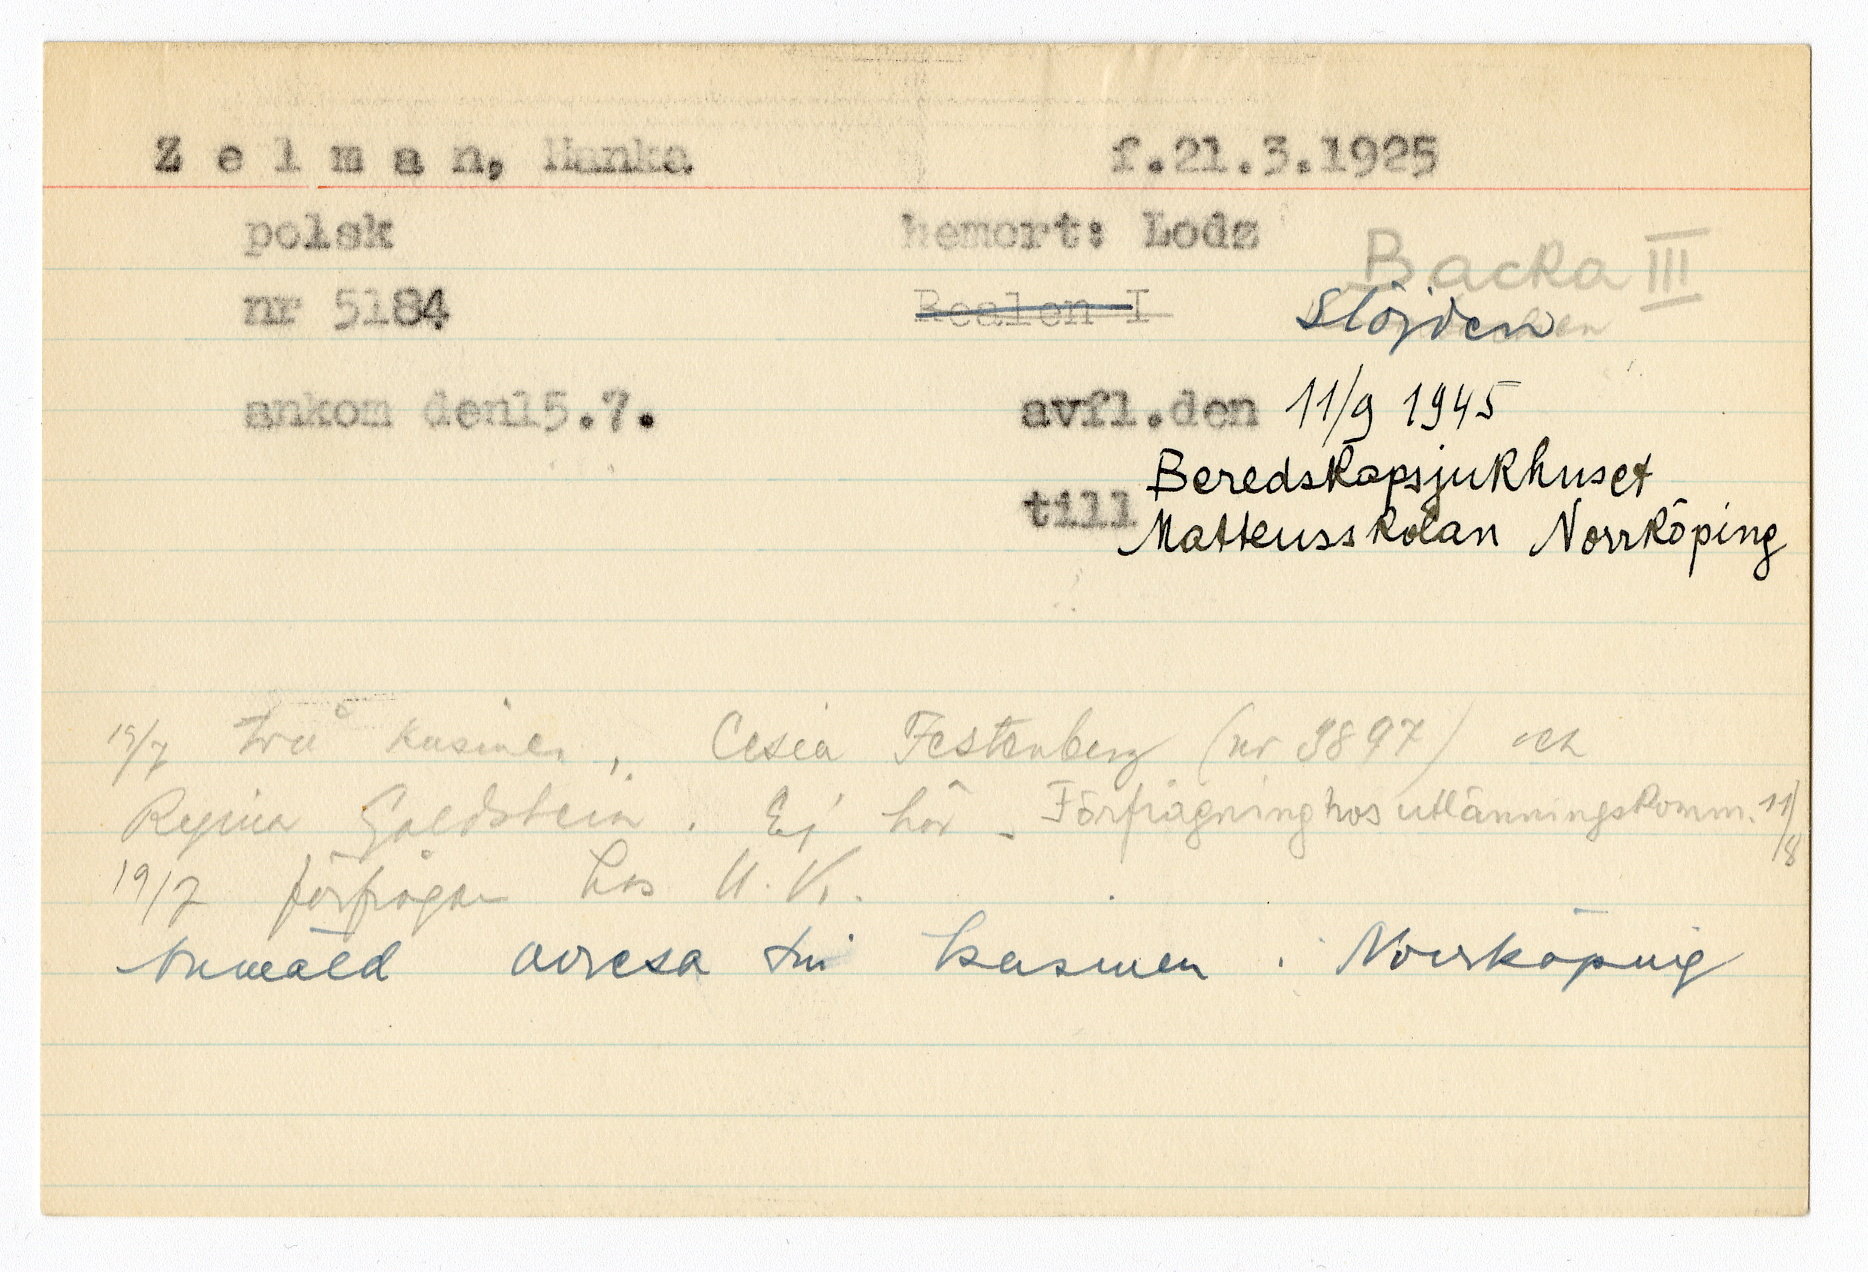 Zelman, Hanka f.21.3.1925
polsk hemort: Lodz
Backa III
nr 5184 Realen I Slöjden
ankom den15.7. avfl.den 11/9 1945
till Beredskapsjukhuset
Matteusskolan Norrköping
19/7 två kusiner, Cesia Festenberg (nr 3897) och
Regina Goldstein. Ej här - Förfrågning hos utlänningskomm. 11/8
19/7 förfrågan hos U.K.
Anmäld avresa till kusinen i Norrköping